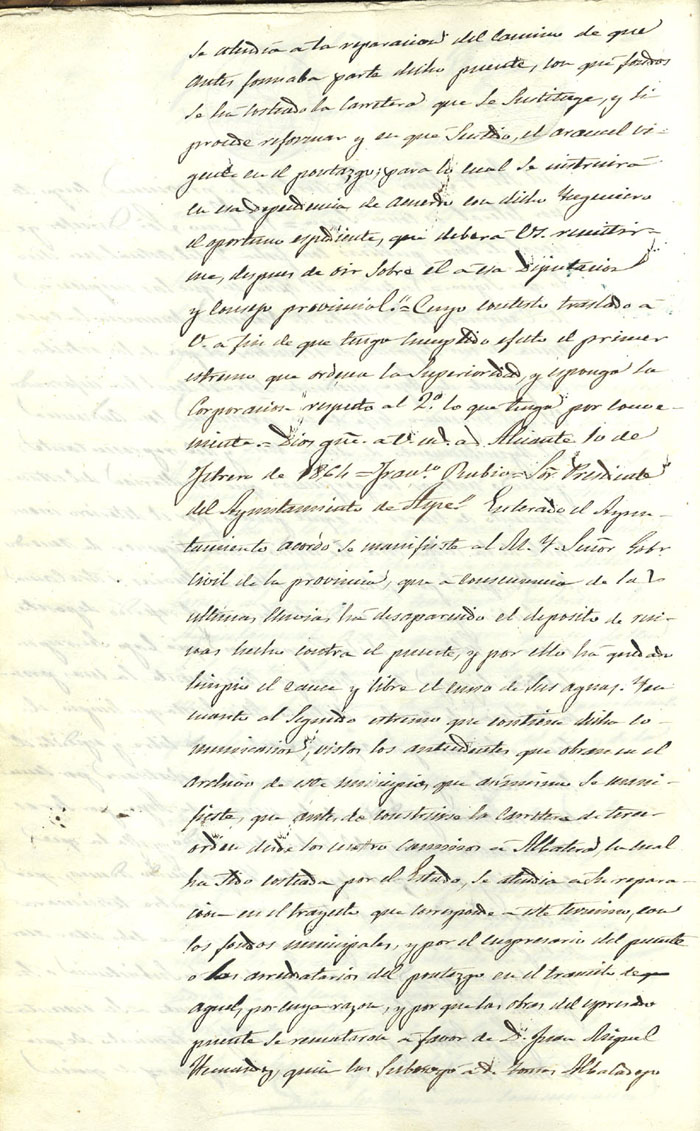 se atendia a la reparacion del camino de que
antes formaba parte dicho puente, con que fondos
se ha costeado la carretera que se sustituye, y si
procede reformar y en que sentido, el arancel vi-
gente en el pontazgo; para lo cual se instruirá
en esa dependencia de acuerdo con dicho Yngeniero
el oportuno espediente, que deberá V.S. remitir-
me, despues de oir sobre él a esa Diputacion
y Consejo provincial." = Cuyo contesto traslado a
V. a fin de que tenga cumplido efecto el primer
estremo que ordena la Superioridad, y esponga la
Corporacion respecto al 2º lo que tenga por conve-
niente = Dios gue. a V. ms. as. Alicante 10 de
Febrero de 1864 = Franco. Rubio = Sor. Presidente
del Ayuntamiento de Aspe." Enterado el Ayun-
tamiento acordó se manifieste al M. Y. Señor Gobr.
Civil de la provincia, que a consecuencia de las
ultimas lluvias ha desaparecido el deposito de rui-
nas hecho contra el puente, y por ello ha quedado
limpio el cauce y libre el curso de sus aguas. Y en
cuanto al segundo estremo que contiene dicha co-
municacion, vistos los antecedentes que obran en el
archivo de este municipio, que asimismo se mani-
fieste, que antes de construirse la carretera de tercer
orden desde los cuatro caminos a Albatera, la cual
ha sido costeada por el Estado, se atendia a su repara-
cion en el trayecto que corresponde a este termino, con
los fondos municipales, y por el empresario del puente
o los arrendatarios del pontazgo en el transito de
aquel, por cuya razon, y por que las obras del espresado
puente se remataron a favor de D. Juan Miguel
Hernandez, quien las subrogó a D. Tomas Albaladejo